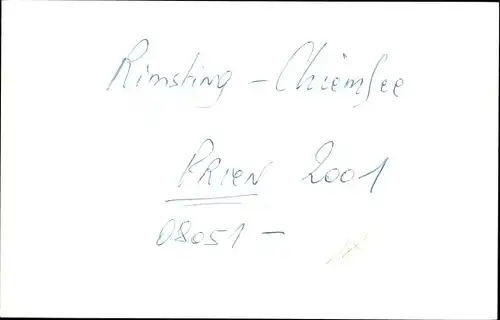 Rimsting - Chiemsee
PRIEN 2001
08051 -